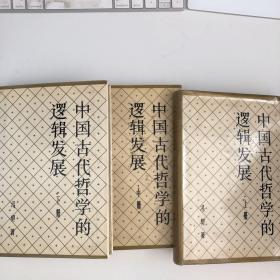 中国古代哲学的
逻辑发展
(下册)
冯契著
中国古代哲学的
逻辑发展
(中册)
冯契著
中国古代哲学的
逻辑发展
(上册)
冯契著